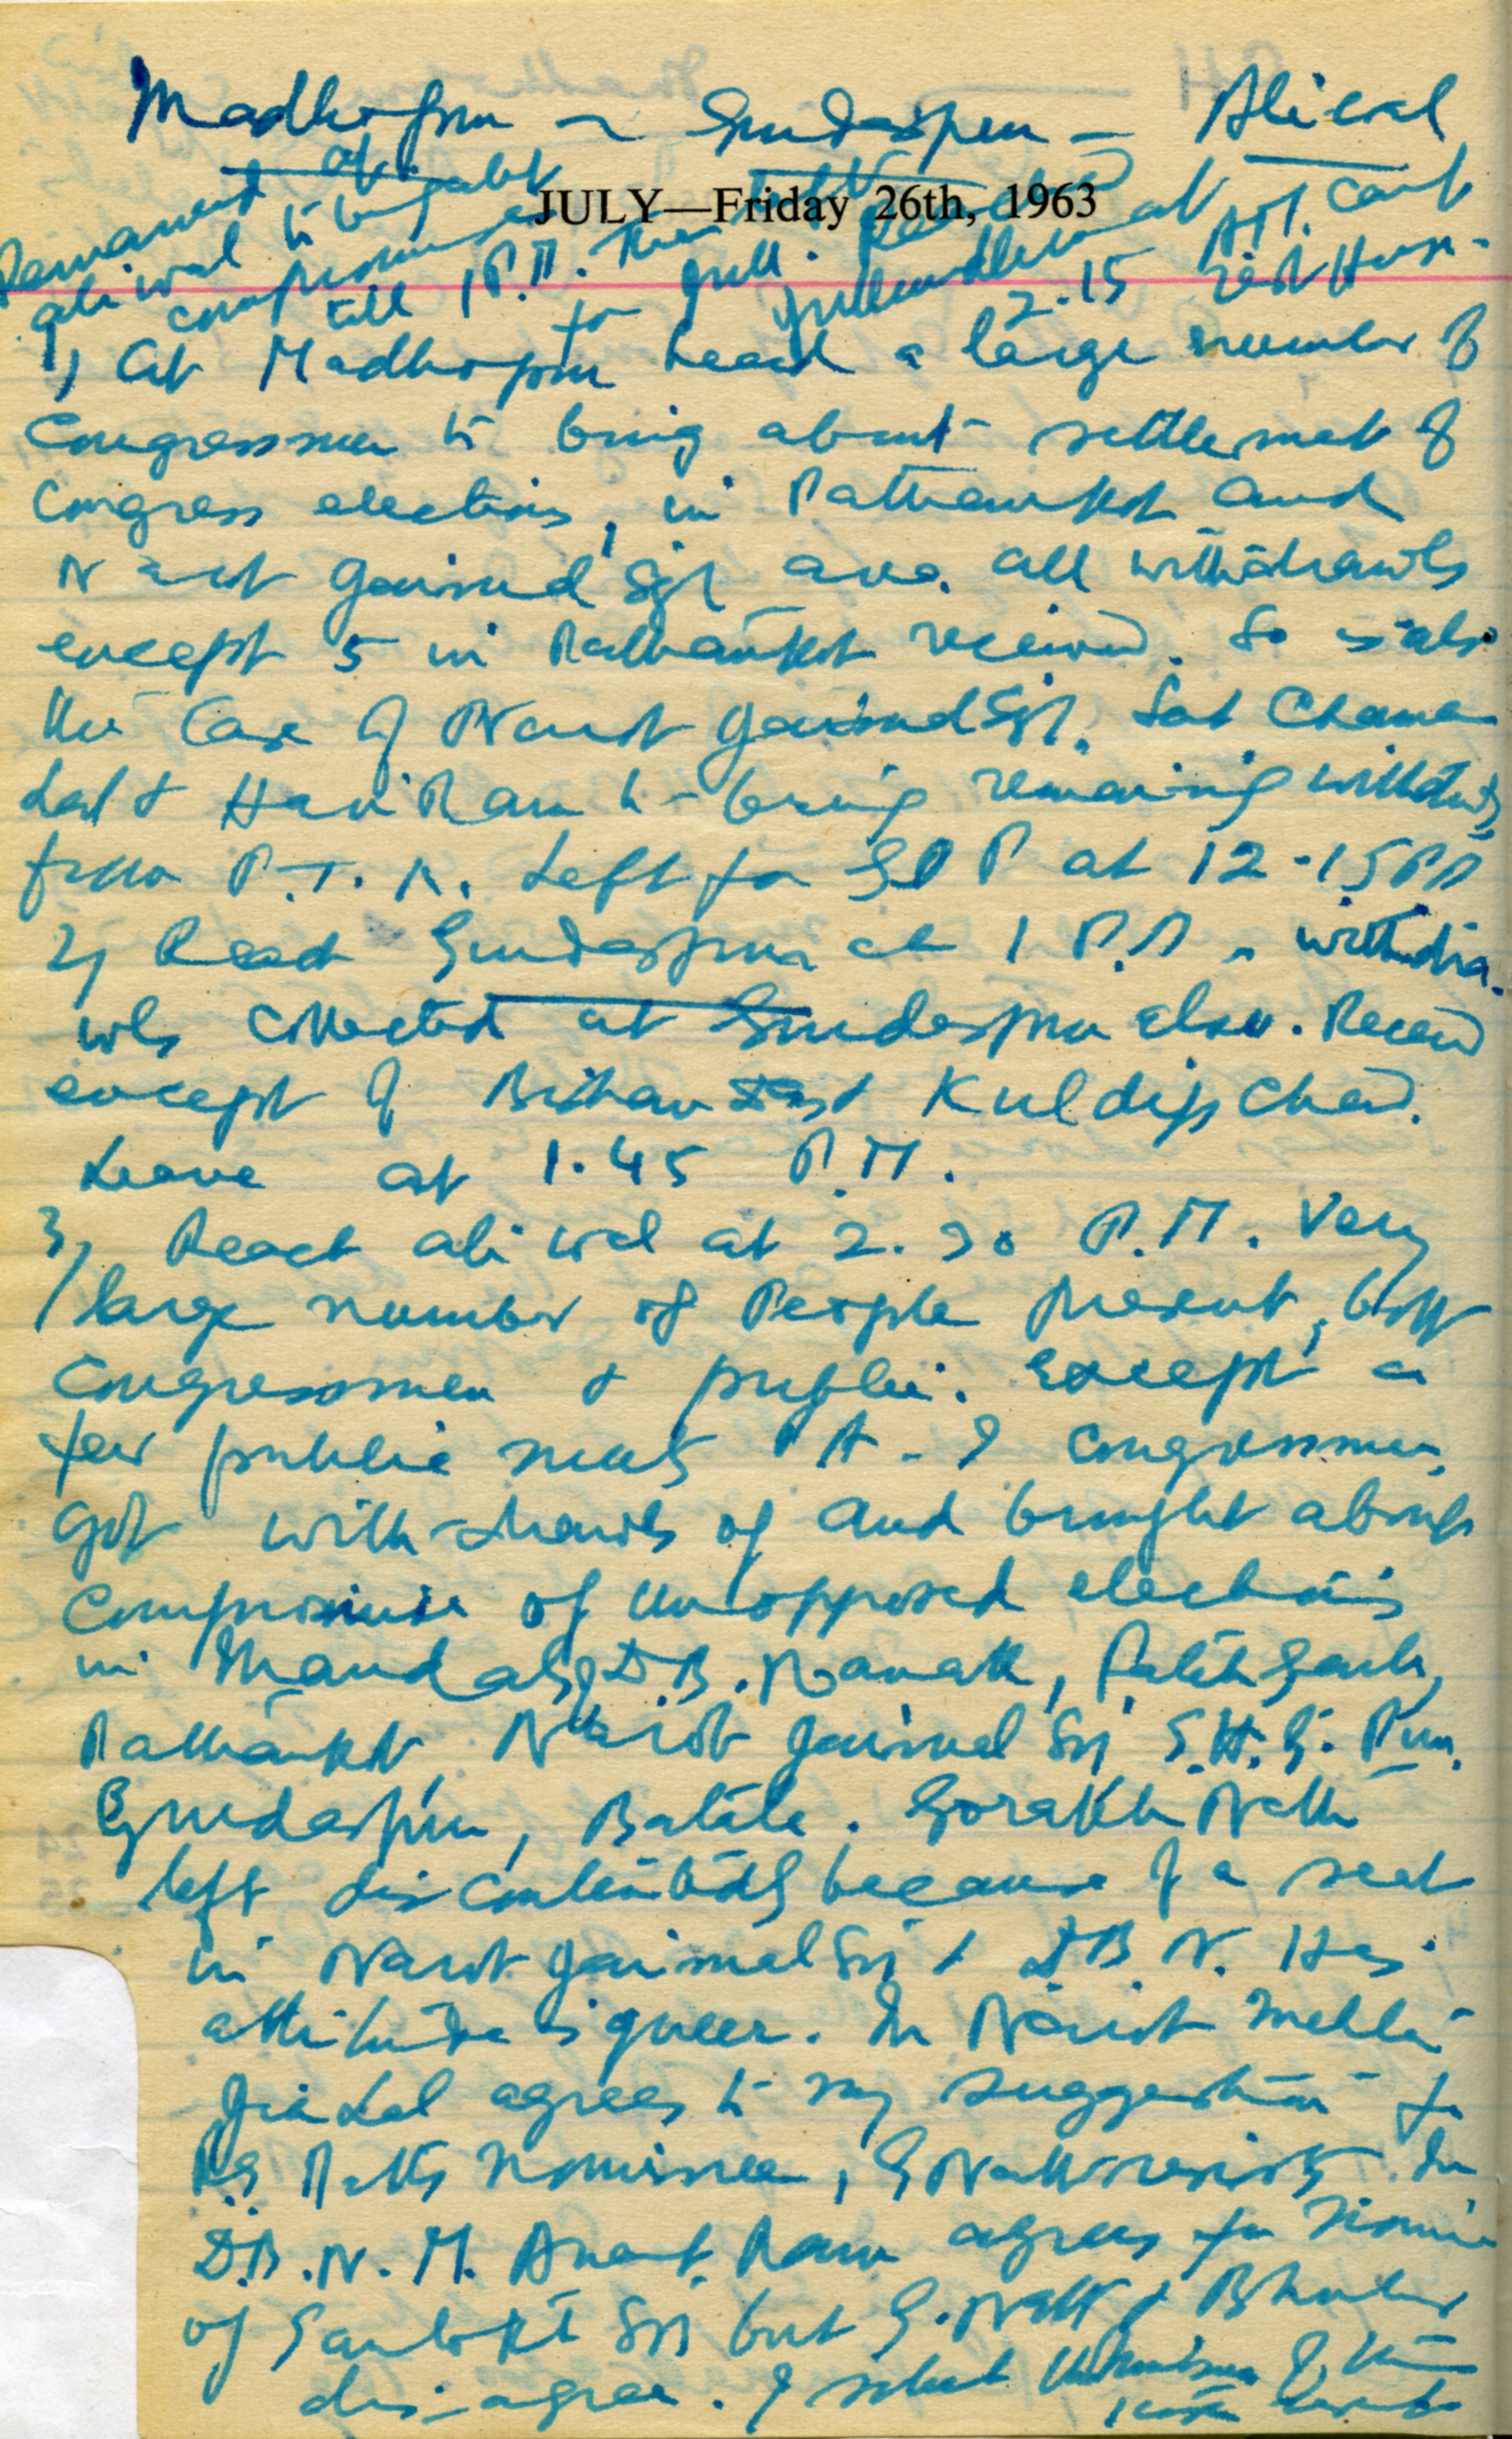 Madhopur ~ Gurdaspur - Aliwal
JULY—Friday 26th, 1963
Remained at
aliwal to bring abt
compromises
till 1 P.M. Then left
for Jull. Reached
Jullundher at
2.15 A.M. Cant
rest House.
1) At Madhopur head a large number of
Congressmen to bring about settlement of
Congress elections, in Pathankot and
Narot Jaimal Sgh area. all withdrawls
except 5 in Pathankot received. So is also
the Case of Narot Jaimal Sgh. Sat Chaman
Lal & Hari Ram to bring remaining withdrls
from P.T.K. Left for GDP at 12-15 PM
2) Reach Gurdaspur at 1 P.M. withdra-
wls collected at Gurdaspur also. Received
except of Bishan & Kuldip Chand.
Leave at 1.45 P.M.
3) Reach aliwal at 2.30 P.M. Very
large number of People present, both
Congressmen & public. Except a
few public meets P.A. - I Congressmen,
got with-drawls of and brought about
Compromise of Un opposed elections
in Mandals of D.B. Nanak, Fateh Garh,
Pathankot, Narot Jaimal Sgh S.H.G. Pur.
Gurdaspur, Batala. Gorakh Nath
left discontentedly because of a seat
in Narot Jaimal Sgh & D.B.N. His
attitude is queer. In Narot Mehla
Gia Lal agrees to my suggestion for
Nominee, G Nath resists. In
D.B.N. M. Anant Ram agrees for Nominee
of Santokh Sgh but G. Nath &
dis-agree. I select